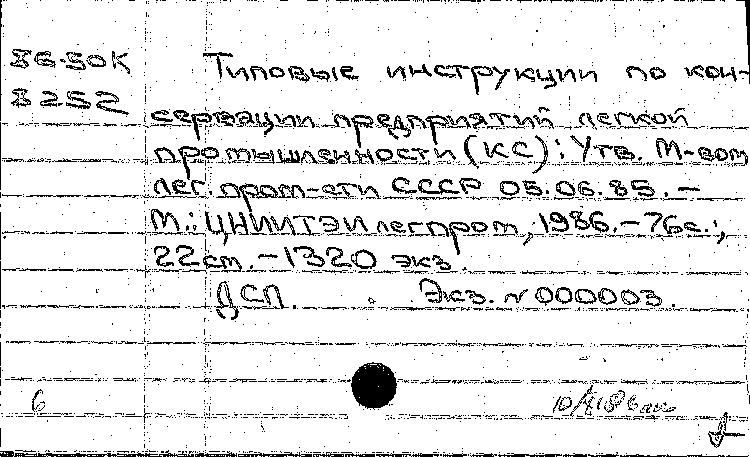 86-50К Типовые инструкции по кон-
8252 сервации предприятий легкой
промышленности (КС): Утв. М-вом
лег. пром-сти СССР 05.06.85. –
М.: ЦНИИТЭИлегпром, 1986. – 76с.;
22см. – 1320 экз.
ДСП. Экз. N 000003.
6